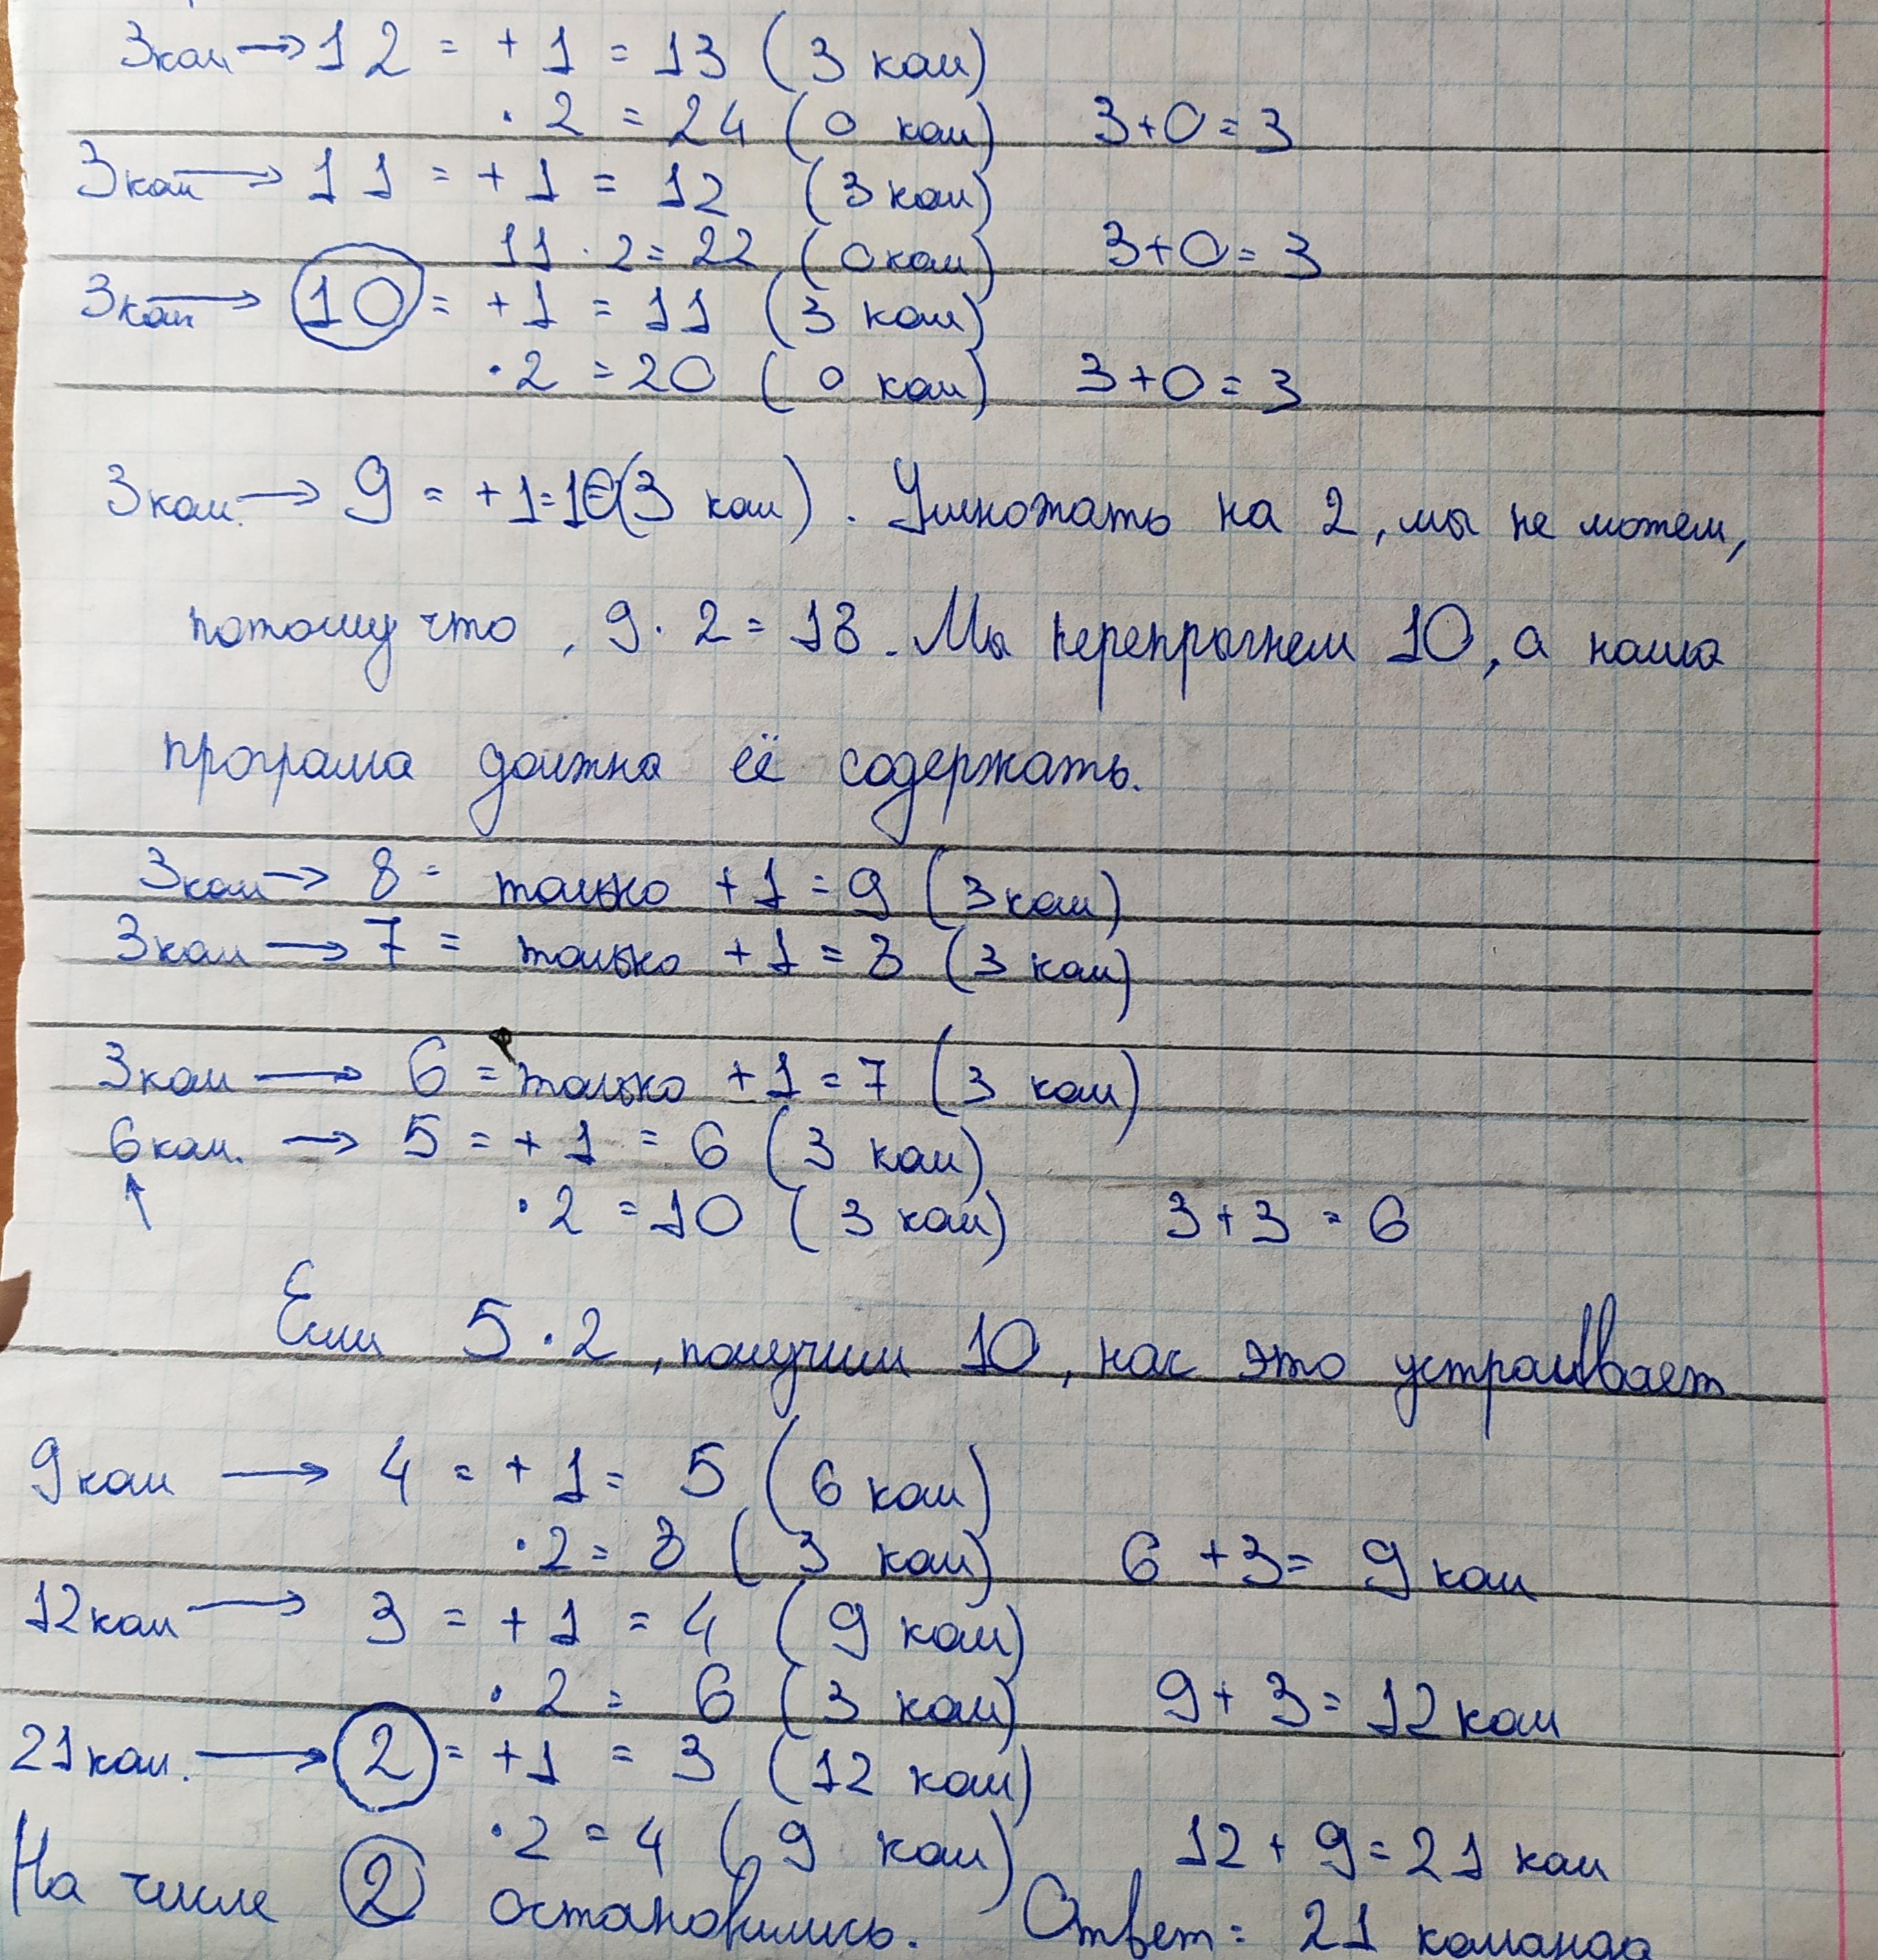 3 ком → 12 = + 1 = 13 (3 ком)
· 2 = 24 (0 ком) 3+0=3
3 ком → 11 = + 1 = 12 (3 ком)
11 · 2 = 22 (0 ком) 3+0=3
3 ком → 10 = + 1 = 11 (3 ком)
· 2 = 20 (0 ком) 3+0=3
3 ком. → 9 = + 1 = 10 (3 ком). Умножать на 2, мы не можем,
потому что, 9 · 2 = 18. Мы перепрыгнем 10, а наша
програма должна её содержать.
3 ком → 8 = только + 1 = 9 (3 ком)
3 ком → 7 = только + 1 = 8 (3 ком)
3 ком → 6 = только + 1 = 7 (3 ком)
6 ком. → 5 = + 1 = 6 (3 ком)
↑ · 2 = 10 (3 ком) 3 + 3 = 6
Если 5 · 2, получим 10, нас это устраивает
9 ком → 4 = + 1 = 5 (6 ком)
· 2 = 8 (3 ком) 6 + 3 = 9 ком
12 ком → 3 = + 1 = 4 (9 ком)
· 2 = 6 (3 ком) 9 + 3 = 12 ком
21 ком. → 2 = + 1 = 3 (12 ком)
· 2 = 4 (9 ком) 12 + 9 = 21 ком
На числе 2 остановились. Ответ: 21 команда